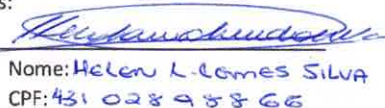 s:
Nome: Helen L. Gomes Silva
CPF: 431 028 988 66